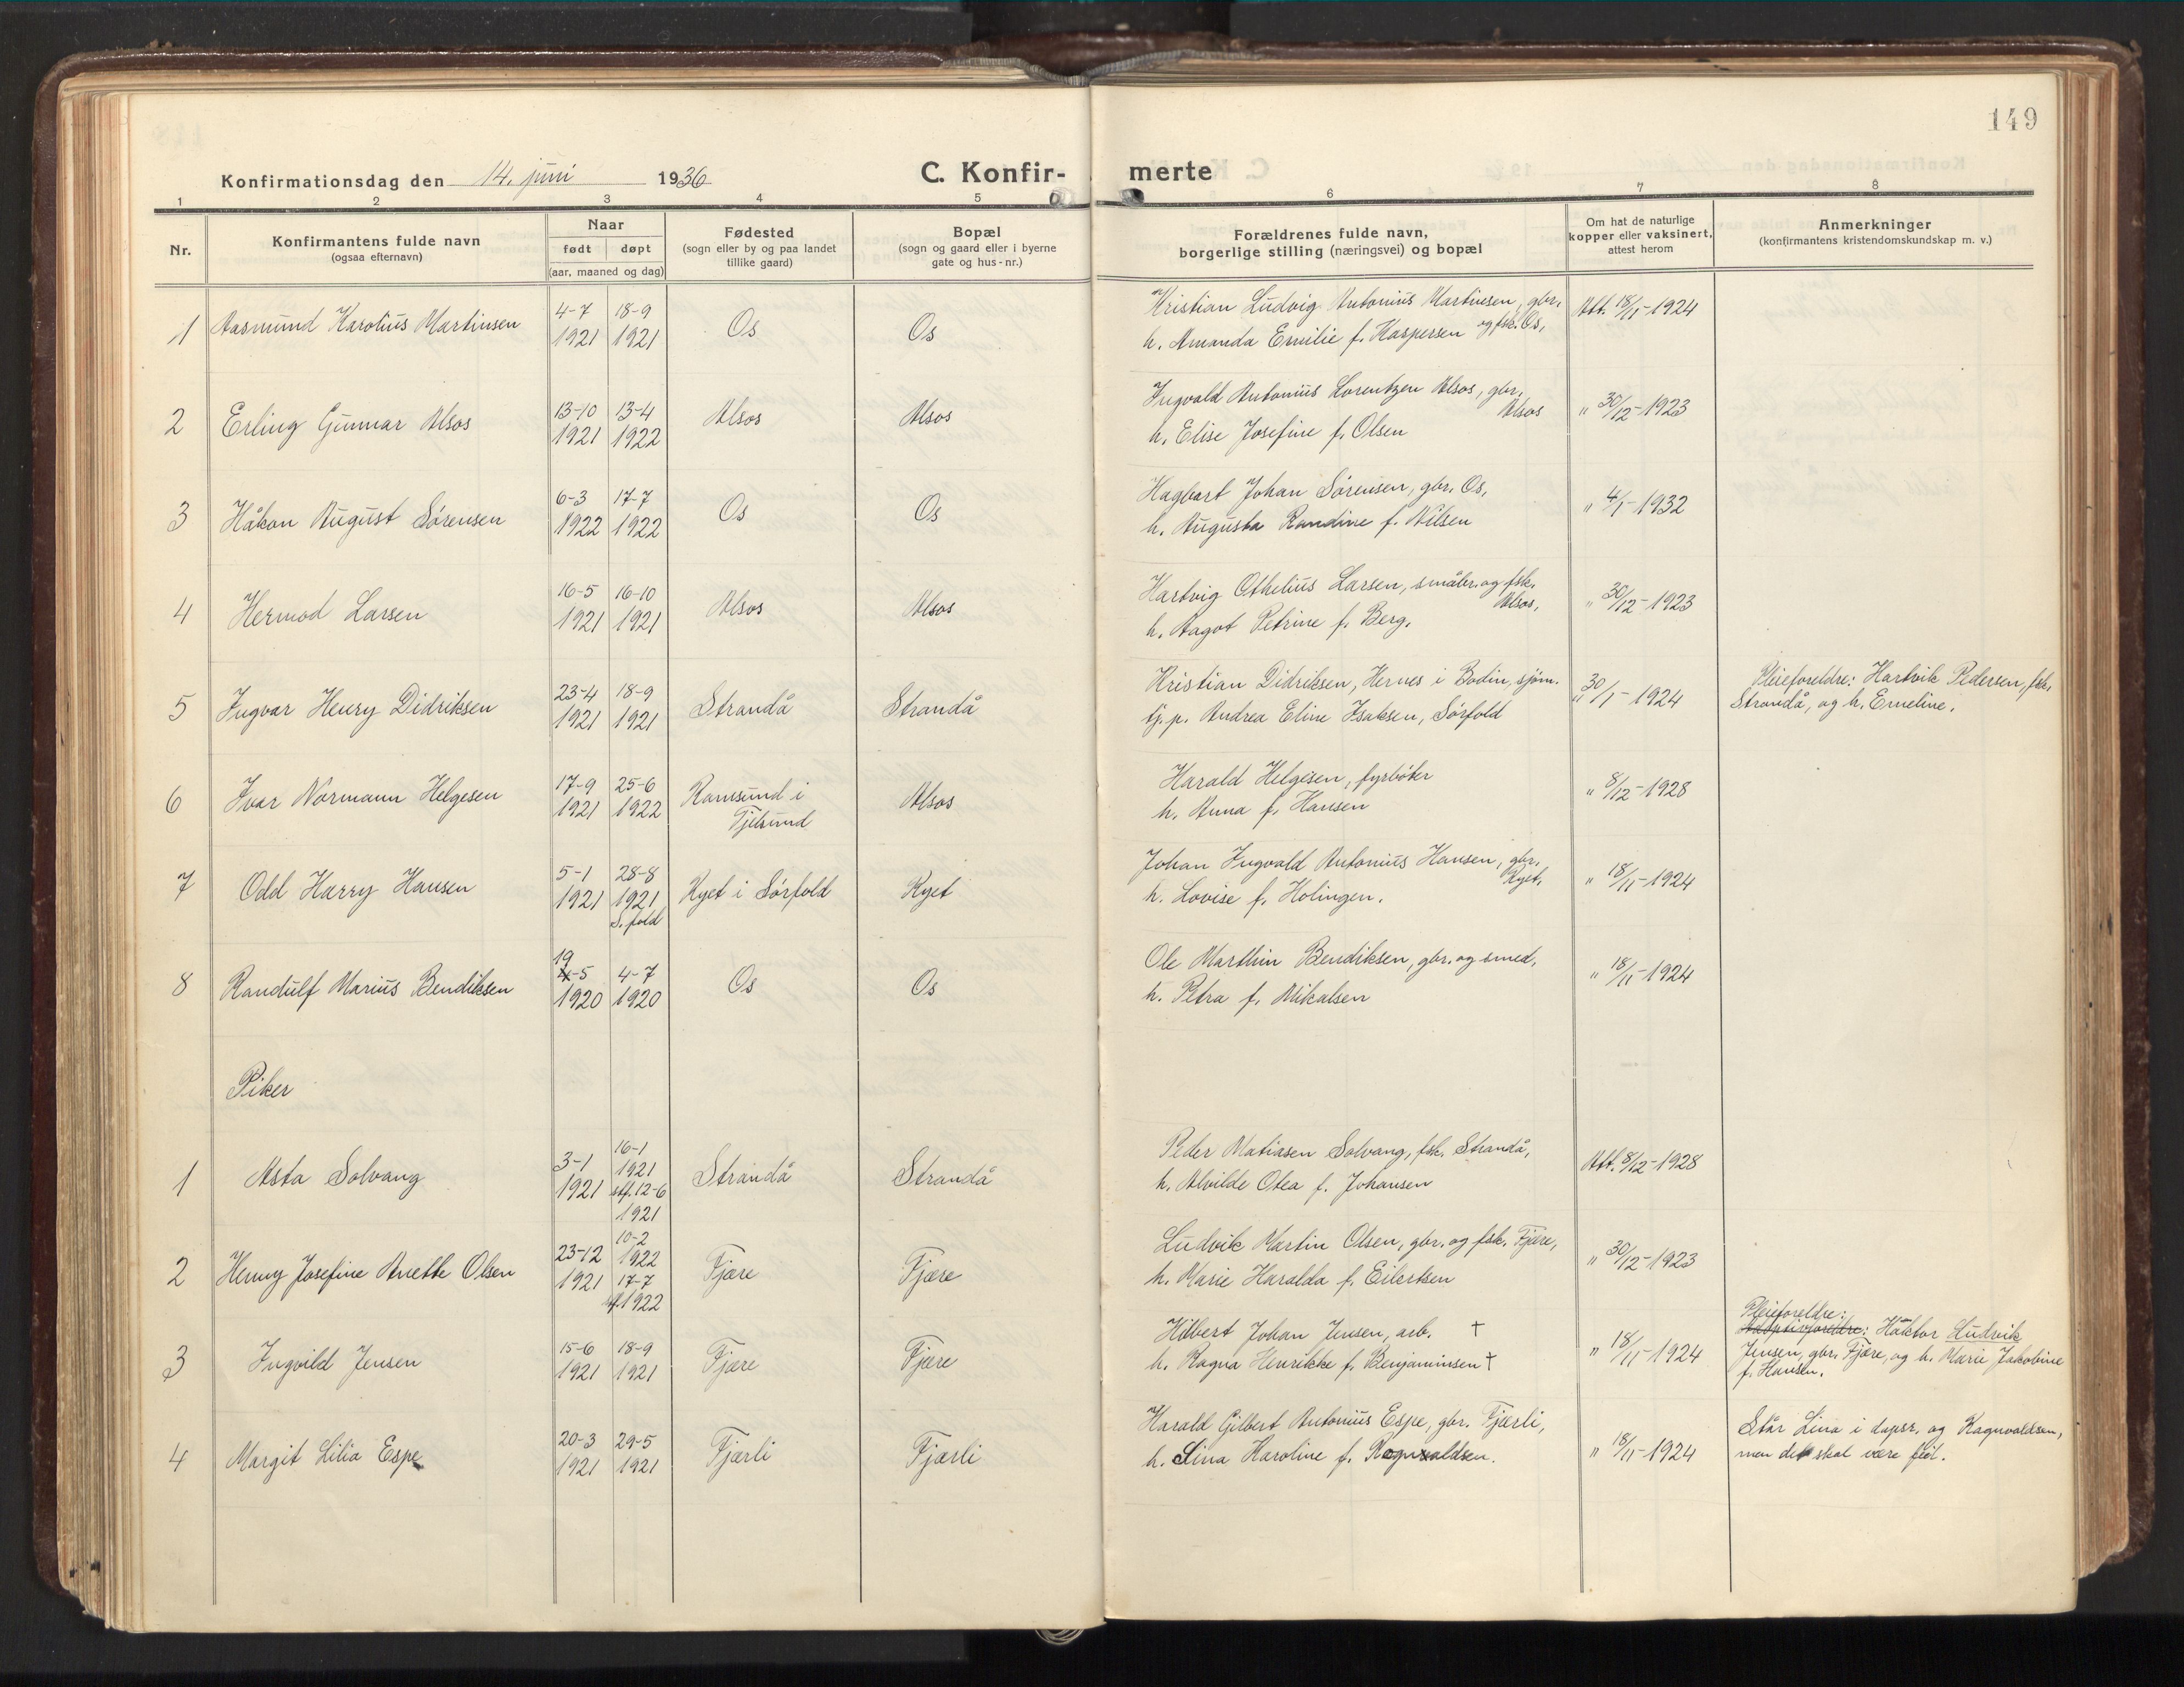 149
Konfirmationsdag den 14. juni 1936
C. Konfir- merte
1 2 3 4 5 6 7 8
Nr.
Konfirmantens fulde navn
(ogsaa efternavn)
Naar
født døpt
(aar, maaned og dag)
Fødested
(sogn eller by og paa landet
tillike gaard)
Bopæl
(sogn og gaard eller i byerne
gate og hus-nr.)
Forældrenes fulde navn,
borgerlige stilling (næringsvei) og bopæl
Om hat de naturlige
kopper eller vaksinert,
attest herom
Anmerkninger
(konfirmantens kristendomskundskap m. v.)
1 Aasmund Karolius Martinsen 4-7 1921 18-9 1921 Os Os
Kristian Ludvig Antonius Martinsen, gbr.
og fsk. Os,
h. Amanda Emilie f. Kaspersen
Att. 18/11-1924
2 Erling Gunnar Alsos 13-10 1921 13-4 1922 Alsos Alsos
Ingvald Antonius Lorentzen Alsos, gbr.
Alsos
h. Elise Josefine f. Olsen
" 30/12-1923
3 Håkon August Sörensen 6-3 1922 17-7 1922 Os Os
Hagbart Johan Sörensen, gbr. Os,
h. Augusta Randine f. Nilsen
" 4/1-1932
4 Hermod Larsen 16-5 1921 16-10 1921 Alsos Alsos
Hartvig Othelius Larsen, småbr. og fsk.
Alsos,
h. Aagot Petrine f. Berg.
" 30/12-1923
5 Ingvar Henry Didriksen 23-4 1921 18-9 1921 Strandå Strandå
Kristian Didriksen, Hernes i Bodin, sjøm.
tj.p. Andrea Eline Isaksen, Sörfold
" 30/1-1924
Pleieforeldre: Hartvik Pedersen, fsk.
Strandå, og h. Emeline.
6 Ivar Normann Helgesen 17-9 1921 25-6 1922 Ramsund i
Tjelsund
Alsos
Harald Helgesen, fyrbøter
h. Anna f. Hansen
" 8/12-1928
7 Odd Harry Hansen 5-1 1921 28-8 1921 S.fold Kyet i Sörfold Kyet
Johan Ingvald Antonius Hansen, gbr.
Kyet,
h. Lovise f. Holingen.
" 18/11-1924
8 Randulf Marius Bendiksen 19-5 1920 4-7 1920 Os Os
Ole Marthin Bendiksen, gbr. og smed,
h. Petra f. Mikalsen
" 18/11-1924
Piker
1 Asta Solvang 3-1 1921 16-1 1921 stf. 12-6 1921 Strandå Strandå
Peder Matiasen Solvang, fsk. Strandå,
h. Alvilde Otea f. Johansen
Att. 8/12-1928
2 Henny Josefine Anette Olsen 23-12 1921 10-2 1922 17-7 1922 Fjære Fjære
Ludvik Martin Olsen, gbr. og fsk. Fjære,
h. Marie Haralda f. Eilertsen
" 30/12-1923
3 Ingvild Jensen 15-6 1921 18-9 1921 Fjære Fjære
Hilbert Johan Jensen, arb. †
h. Ragna Henrikke f. Benjaminsen †
" 18/11-1924
Pleieforeldre:
Adoptivforeldre: Haktor Ludvik
Jensen, gbr. Fjære, og h. Marie Jakobine
f. Hansen.
4 Margit Lilia Espe 20-3 1921 29-5 1921 Fjærli Fjærli
Harald Gilbert Antonius Espe, gbr. Fjærli,
h. Lina Karoline f. Ragnvaldsen.
" 18/11-1924
Står Lina i dåpsr. og Ragnvaldsen,
men det skal være feil.